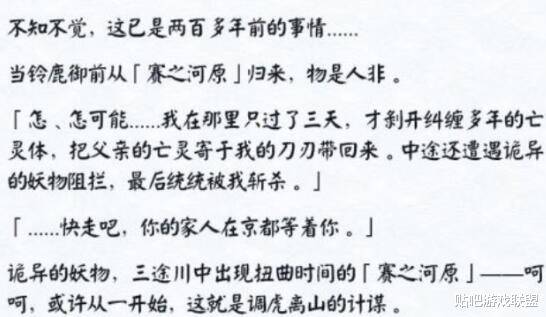 不知不觉，这已是两百多年前的事情……
当铃鹿御前从「赛之河原」归来，物是人非。
「怎、怎可能……我在那里只过了三天，才剥开纠缠多年的亡
灵体，把父亲的亡灵寄于我的刀刃带回来。中途还遭遇诡异
的妖物阻拦，最后统统被我斩杀。」
「……快走吧，你的家人在京都等着你。」
诡异的妖物，三途川中出现扭曲时间的「赛之河原」——呵
呵，或许从一开始，这就是调虎离山的计谋。
贴吧游戏联盟